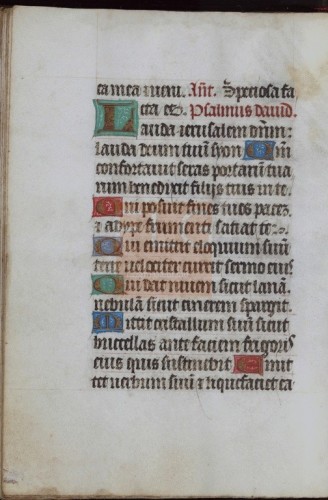 ca mea vieni. Añt. Speciosa fa
cta es. Psalmus david.
Lauda ierusalem dñm:
lauda deum tuũ syon Qm̃
confortavit seras portarũ tua
rum benedixit filijs tuis in te.
Qui posuit fines tuos pacez.
& adype frumenti satiat te.
Qui emittit eloquium suũ
terre velociter currit sermo eius
Qui dat nivem sicut lanã.
nebulã sicut cinerem spargit.
Mittit cristallum suũ sicut
buccellas ante faciem frigoris
eius quis sustinebit Emit
tet verbum suũ & liquefaciet ea